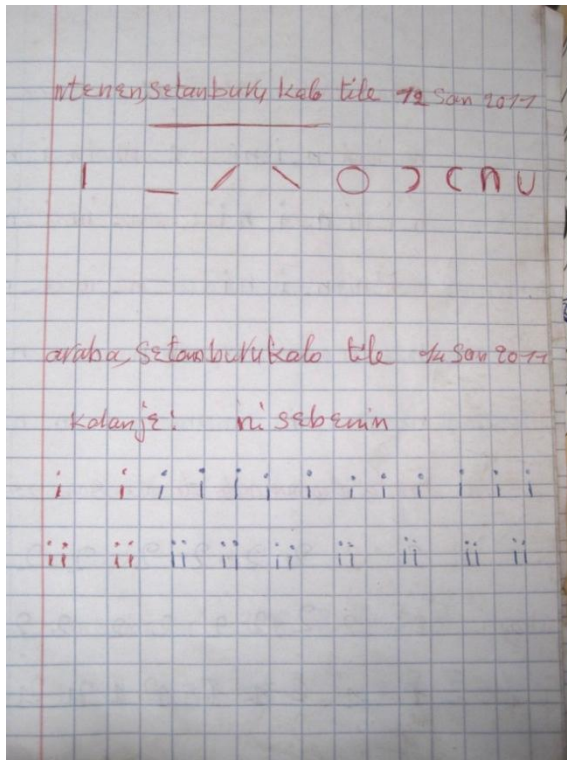 ntɛnɛn, sɛtanburu kalo tile 12 San 2011
araba, sɛtanburu kalo tile 14 San 2011
kalanjɛ: ni sɛbɛnin
i i i i i i i i i i i i i
ii ii ii ii ii ii ii ii ii